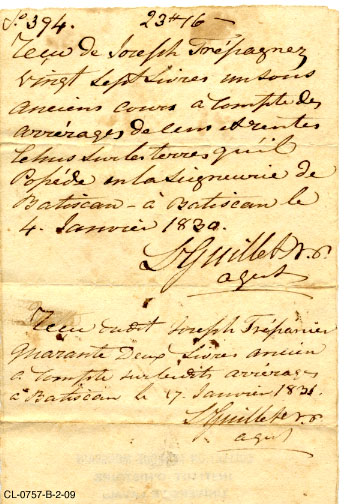 fo. 394. 23tt 16
Reçu de Joseph Trépagnez
Vingt Sept Livres un sous
anciens cours à Compte des
arrérages de Cens et rentes
Echus sur les terres qu'il
Possède en la Seigneurie de
Batiscan - à Batiscan le
4. Janvier 1830.
Ls Guillet N.P.
agent
Reçu dudit Joseph Trépanier
Quarante Deux Livres ancien
à Compte sur lesdits arrérages
à Batiscan le 17 Janvier 1831
Ls Guillet N.P.
agent
CL-0757-B-2-09